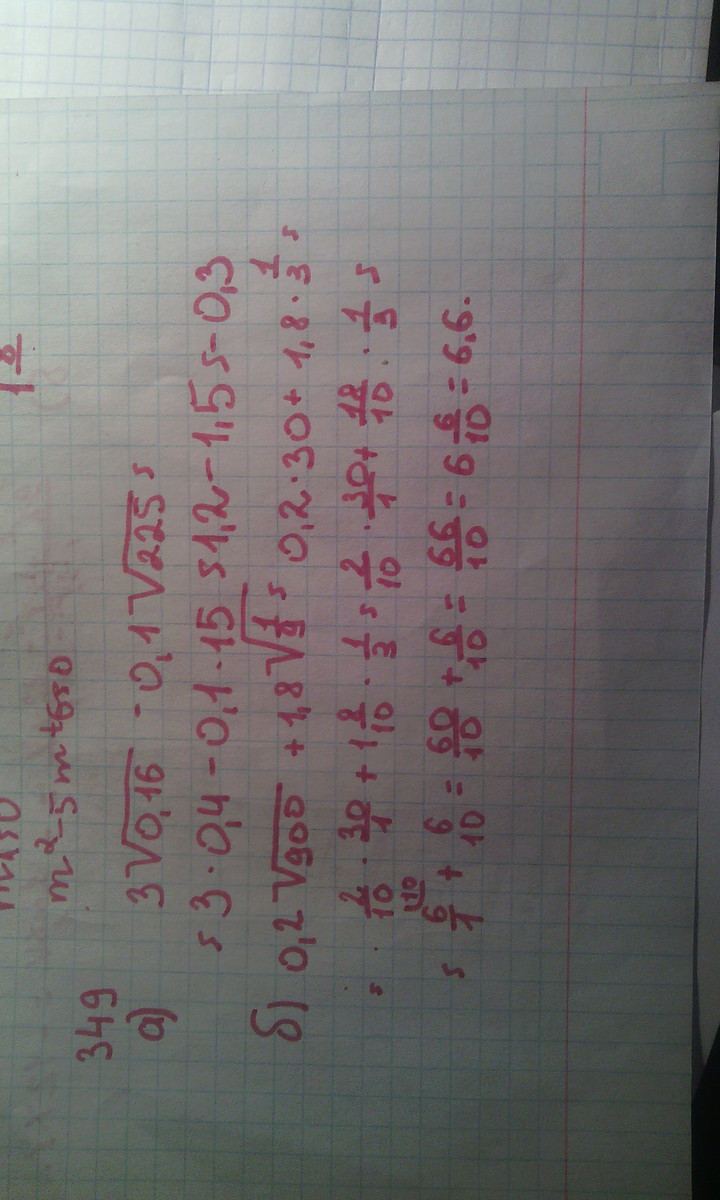 m² - 5m + 6 = 0
349
а) 3√0,16 - 0,1√225 =
= 3 · 0,4 - 0,1 · 15 = 1,2 - 1,5 = - 0,3
б) 0,2√900 + 1,8√(1/9) = 0,2 · 30 + 1,8 · 1/3 =
= 2/10 · 30/1 + 1 8/10 · 1/3 = 2/10 · 30/1 + 18/10 · 1/3 =
= 6/1 + 6/10 = 60/10 + 6/10 = 66/10 = 6 6/10 = 6,6.